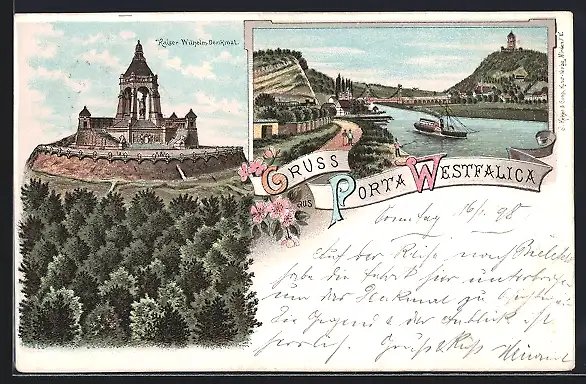 Kaiser Wilhelm Denkmal.
GRUSS
AUS
PORTA WESTFALICA
Sonntag 16/1. 98.
Auf der Reise nach Bielefeld
habe die Fahrt hier unterbrochen
um das Denkmal zu besichtigen.
Die Gegend & der Anblick ist
herrlich. Gruß & Kuß